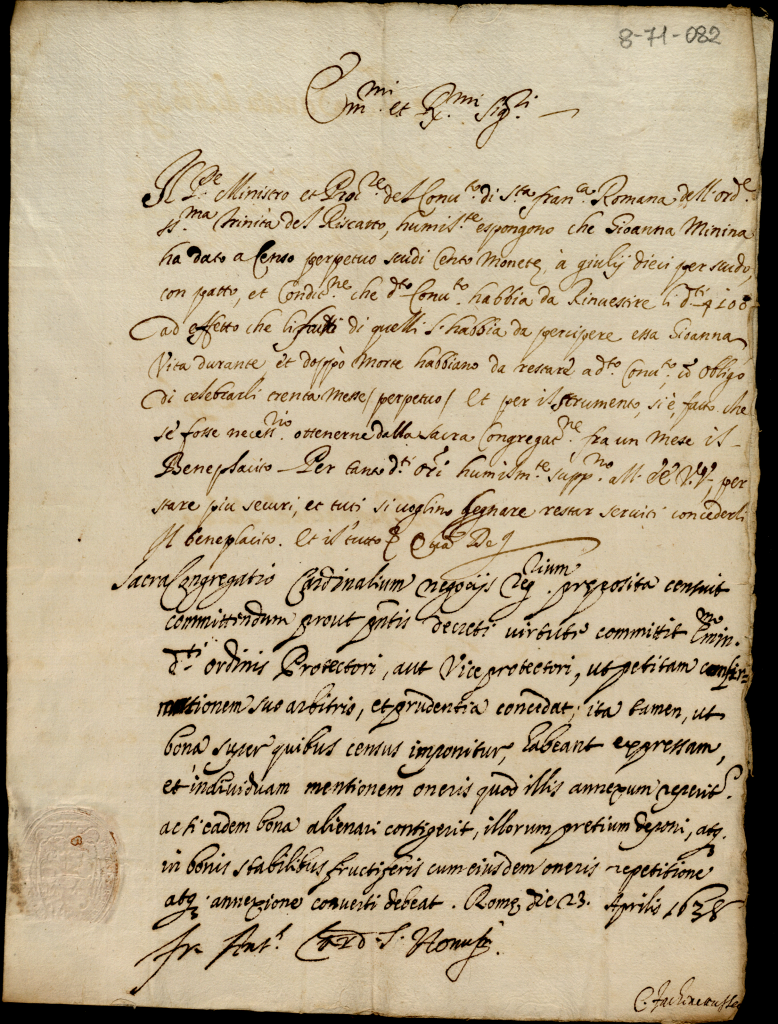 8-71-082
Em.mi et R.mi Sig.ri
Il P.re Ministro et Proc.re del Conv.to di S.ta Fran.ca Romana dell'ord.e
ss.ma Trinità del Riscatto, humil.te espongono che Gioanna Minina
ha dato a Censo perpetuo scudi Cento Monete, à giulij dieci per scudo,
con patto, et Condit.ne che d.to Conv.to habbia da Rinvestire li d.ti 100
ad effetto che li frutti di quelli s'habbia da percipere essa Gioanna
Vita durante et doppò Morte habbiano da restare a d.to Conv.to, cõ obligo
di celebrarli trenta Messe perpetue. Et per istrumento, si è, fatto che
se fosse necess.rio ottenerne dalla Sacra Congregat.ne fra un Mese il
Beneplacito. Per tanto d.ti Ori humilm.te supp.no all' EE. VV. per
stare piu securi, et tuti si voglino degnare restar serviti concederli
Il beneplacito. Et il tutto
Sacra Congregatio Cardinalium negocijs Reg.rium preposita censuit
committendum prout pñtis decreti virtute committit Emin.mo
d.ti ordinis Protectori, aut Viceprotectori, ut petitam confir=
mationem suo arbitrio, et prudentia concedat; ita tamen, ut
bona super quibus census imponitur, habeant expressam,
et individuam mentionem oneris quod illis annexum reperit.r
ac si eadem bona alienari contigerit, illorum pretium deponi, atq.
in bonis stabilibus fructiferis cum eiusdem oneris repetitione
atq. annexione converti debeat. Rome die 23. Aprilis 1638
fr. Ant. Card. S. Honuph.